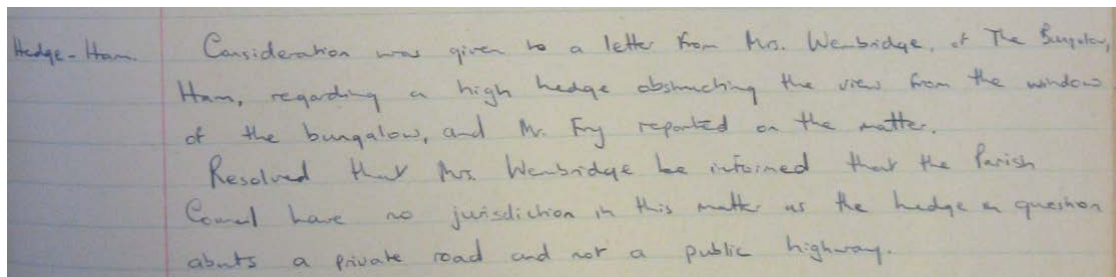 Hedge - Ham. Consideration was given to a letter from Mrs. Wembridge, of The Bungalow,
Ham, regarding a high hedge obstructing the view from the window
of the bungalow, and Mr. Fry reported on the matter.
Resolved that Mrs. Wembridge be informed that the Parish
Council have no jurisdiction in this matter as the hedge in question
abuts a private road and not a public highway.